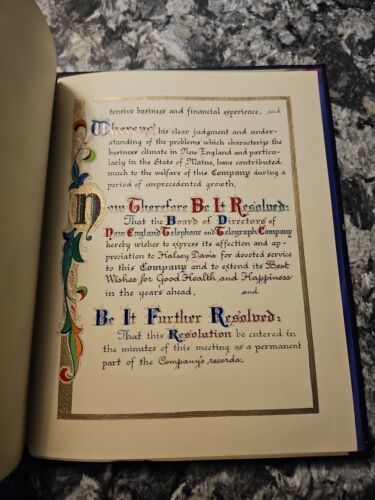 tensive business and financial experience, and
Whereas his clear judgment and under-
standing of the problems which characterize the
business climate in New England and particu-
larly in the State of Maine, have contributed
much to the welfare of this Company during a
period of unprecedented growth,
Now Therefore Be It Resolved:
That the Board of Directors of
New England Telephone and Telegraph Company
hereby wishes to express its affection and ap-
preciation to Halsey Davis for devoted service
to this Company and to extend its Best
Wishes for Good Health and Happiness
in the years ahead. and
Be It Further Resolved:
That this Resolution be entered in
the minutes of this meeting as a permanent
part of the Company's records.